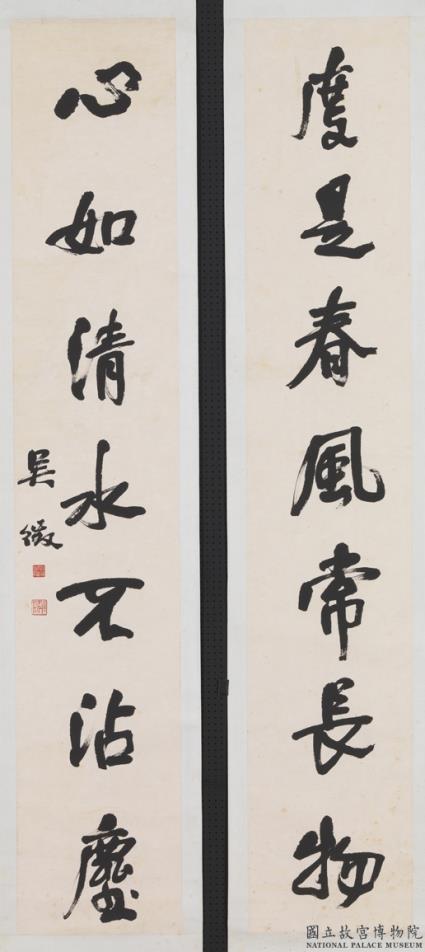 度是春風常長物
心如清水不沾塵
吳徵
國立故宮博物院
NATIONAL PALACE MUSEUM